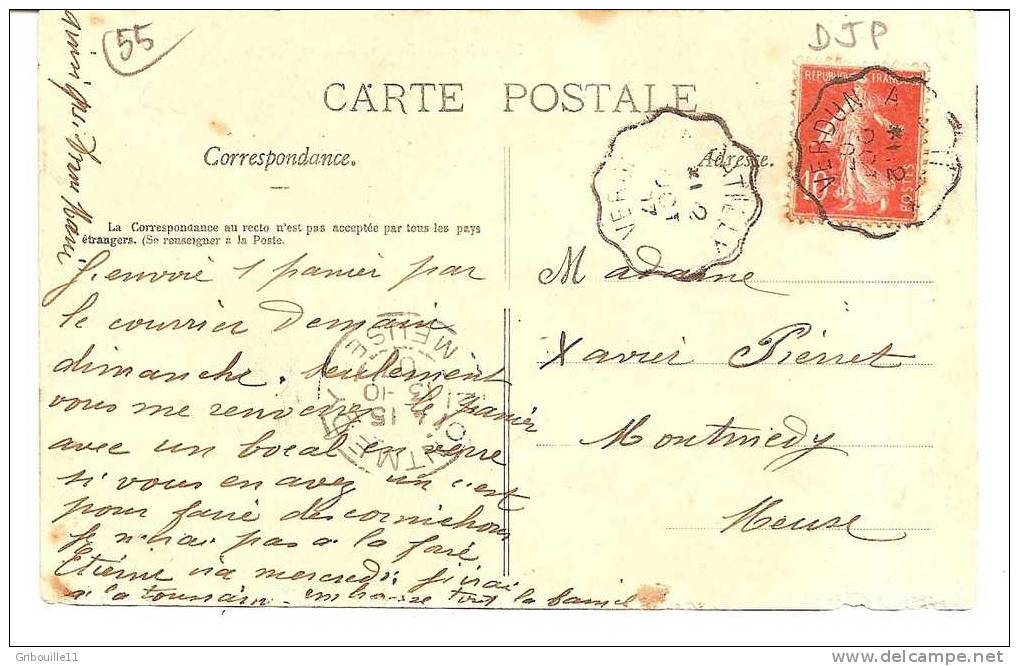 55
DJP
CARTE POSTALE
Correspondance.
Adresse.
REPUBLIQUE FRANC
10
POSTES
VERDUN A
La Correspondance au recto n'est pas acceptée par tous les pays
étrangers. (Se renseigner a la Poste.
J'envoie 1 panier par
le courrier Demain
dimanche. Seulement
vous me renverrez le panier
avec un bocal en verre
si vous en avez un c'est
pour faire des cornichons
je n'irai pas a la
Etienne ira mercredi j'irai
a la toussain embrasse tout la famil
Madame
Xavier Pierret
Montmedy
Meuse
MONTMEDY
MEUSE
15
Gribouille11
delcampe.net